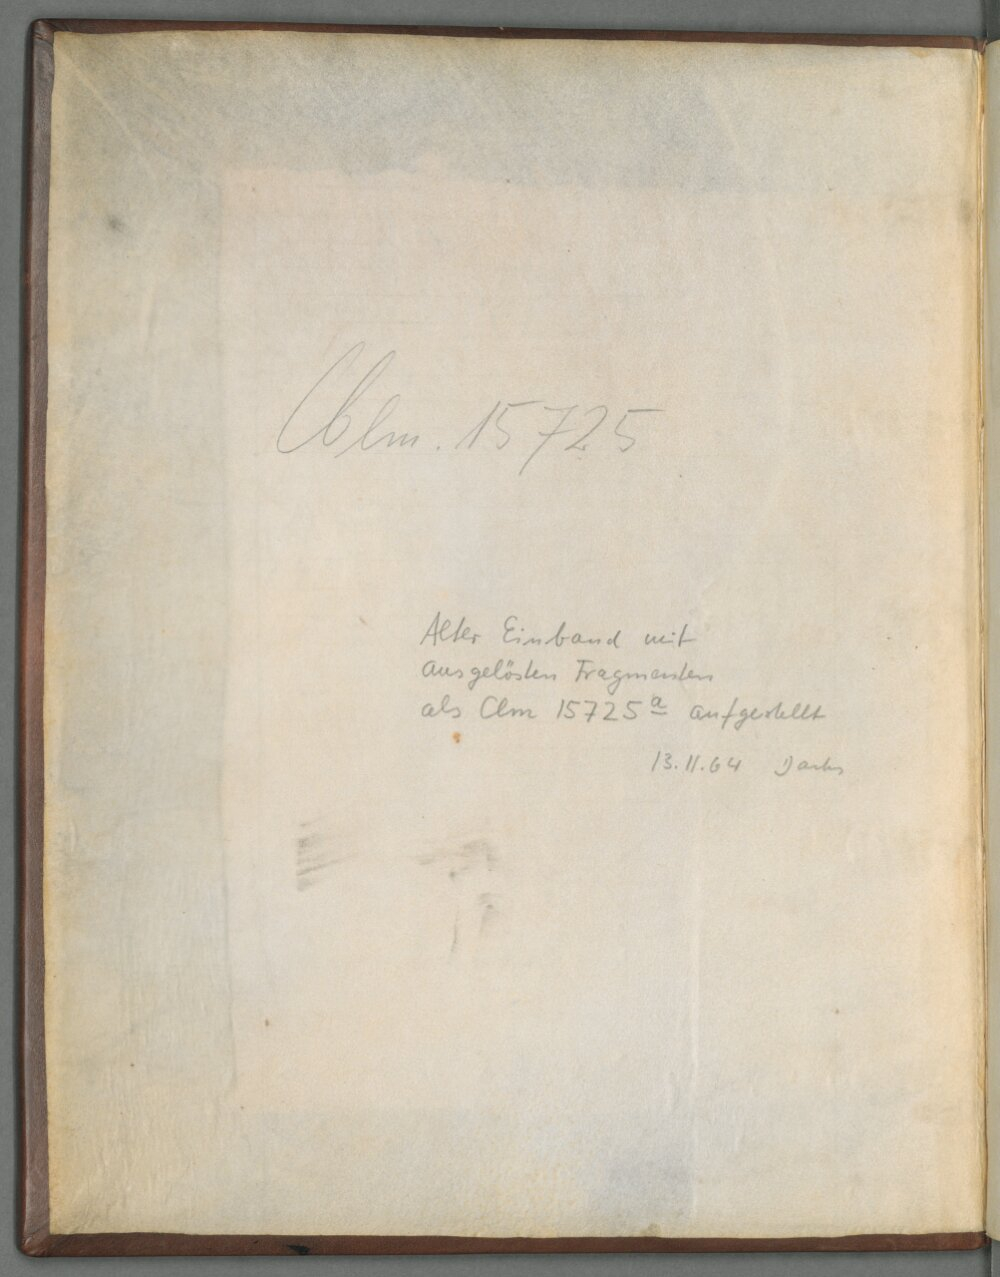 Clm. 15725
Alter Einband mit
ausgelösten Fragmenten
als Clm 15725ª aufgestellt
13.11.64